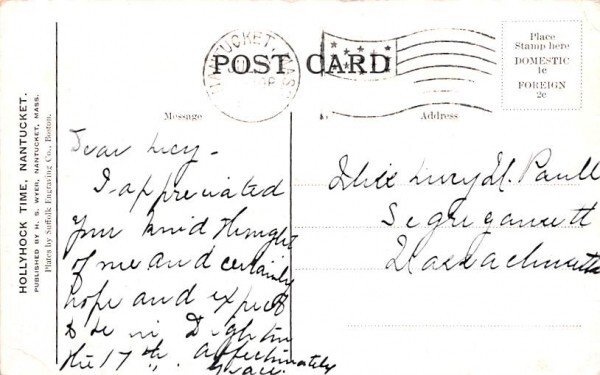 HOLLYHOCK TIME, NANTUCKET.
PUBLISHED BY H. S. WYER, NANTUCKET, MASS.
Plates by Suffolk Engraving Co., Boston.
NANTUCKET, MASS.
POST CARD
Place
Stamp here
DOMESTIC
1c
FOREIGN
2c
Message
Address
Dear Lucy -
I appreciated
your kind thought
of me and certainly
hope and expect
to be in Dighton
the 17th. Affectionately
Grace.
Miss Lucy H. Paull
Segreganset
Massachusetts